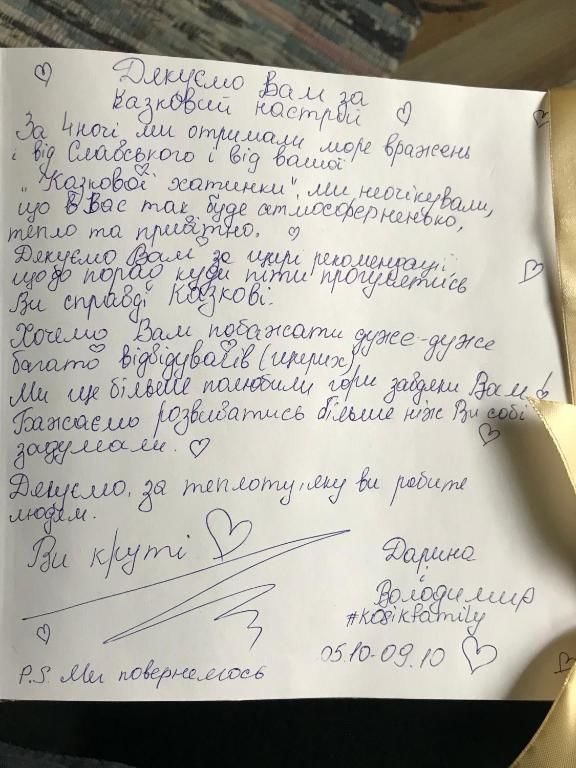 Дякуємо Вам за
казковий настрій
За 4 ночі ми отримали море вражень
і від Славського і від вашої
"Казкової хатинки", ми неочікували,
що в Вас так буде атмосферненько,
тепло та привітно.
Дякуємо Вам за щирі рекомендації
щодо порад куди піти прогулятись
Ви справді Казкові.
Хочемо Вам побажати дуже-дуже
багато відвідувачів (щирих)
Ми ще більше полюбили гори завдяки Вам!
Бажаємо розвиватись більше ніж Ви собі
задумали.
Дякуємо, за теплоту, яку ви робите
людям.
Ви круті
Дарина
і
Володимир
#kosikfamily
05.10-09.10
P.S. Ми повернемось